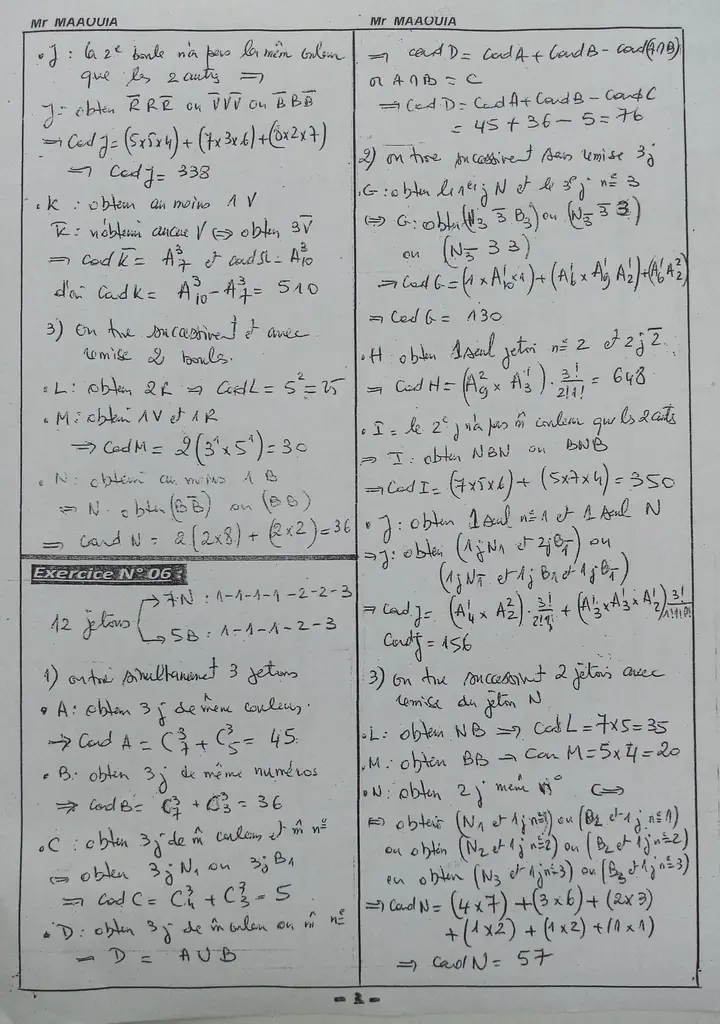 Mr MAAOUIA
• J : la 2e boule n'a pas la même couleur
que les 2 autres ⟹
J = obtenir R̅RR̅ ou V̅VV̅ ou B̅BB̅
⟹ Card J = (5x5x4) + (7x3x6) + (8x2x7)
⟹ Card J = 338
• K : obtenir au moins 1 V
K̅ : n'obtenir aucune V ⟺ obtenir 3V̅
⟹ Card K̅ = A₇³ et card Ω = A₁₀³
d'où Card K = A₁₀³ - A₇³ = 510
3) on tire successivement et avec
remise 2 boules.
• L : obtenir 2R ⟹ Card L = 5² = 25
• M : obtenir 1V et 1R
⟹ Card M = 2(3¹ x 5¹) = 30
• N : obtenir au moins 1 B
⟹ N : obtenir (BB̅) ou (BB)
⟹ Card N = 2(2x8) + (2x2) = 36
Exercice N° 06
12 jetons
7N : 1-1-1-1-2-2-3
5B : 1-1-1-2-3
1) on tire simultanément 3 jetons
• A : obtenir 3j de même couleur.
⟹ Card A = C₇³ + C₅³ = 45
• B : obtenir 3j de même numéros
⟹ Card B = C₇³ + C₃³ = 36
• C : obtenir 3j de m̂ couleur et m̂ n°
⟺ obtenir 3j N₁ ou 3j B₁
⟹ Card C = C₄³ + C₃³ = 5
• D : obtenir 3j de m̂ couleur ou m̂ n°
— D = A∪B
Mr MAAOUIA
⟹ Card D = Card A + Card B - Card(A∩B)
or A∩B = C
⟹ Card D = Card A + Card B - Card C
= 45 + 36 - 5 = 76
2) on tire successivement sans remise 3j
• G : obtenir le 1er j N et le 3e j n° 3
⟺ G : obtenir (N₃ 3̅ B₃) ou (N₃̅ 3̅ 3)
ou (N₃̅ 3 3)
⟹ Card G = (1 x A₁₀¹ x 1) + (A₆¹ x A₉¹ A₂¹) + (A₆¹ A₂²)
⟹ Card G = 130
• H : obtenir 1 seul jeton n° 2 et 2j 2̅
⟹ Card H = (A₉² x A₃¹) . 3!/2!1! = 648
• I = le 2e j n'a pas m̂ couleur que les 2 autres
⟹ I : obtenir NBN ou BNB
⟹ Card I = (7x5x6) + (5x7x4) = 350
• J : obtenir 1 seul n° 1 et 1 seul N
⟹ J : obtenir (1j N₁ et 2j B₁̅) ou
(1j N₁̅ et 1j B₁ et 1j B₁̅)
⟹ Card J = (A₄¹ x A₂²) . 3!/2!1! + (A₃¹ x A₃¹ x A₂¹) 3!/1!1!1!
Card J = 156
3) on tire successivt 2 jetons avec
remise du jeton N
• L : obtenir NB ⟹ Card L = 7x5 = 35
• M : obtenir BB ⟹ Car M = 5x4 = 20
• N : obtenir 2j même n° ⟺
⟺ obtenir (N₁ et 1j n°1) ou (B₂ et 1j n°1)
ou obtenir (N₂ et 1j n°2) ou (B₂ et 1j n°2)
ou obtenir (N₃ et 1j n°3) ou (B₃ et 1j n°3)
⟹ Card N = (4x7) + (3x6) + (2x3)
+ (1x2) + (1x2) + (1x1)
⟹ Card N = 57